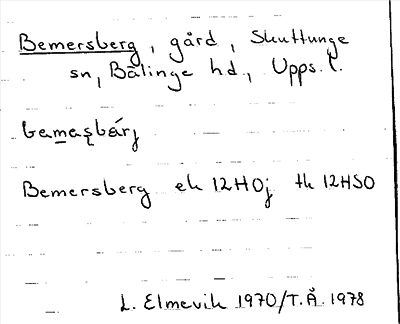 Bemersberg, gård, Skuttunge
sn, Bälinge hd., Upps. l.
bemașbárj
Bemersberg ek 12H0j tk 12HSO
L. Elmevik 1970/T.Å. 1978